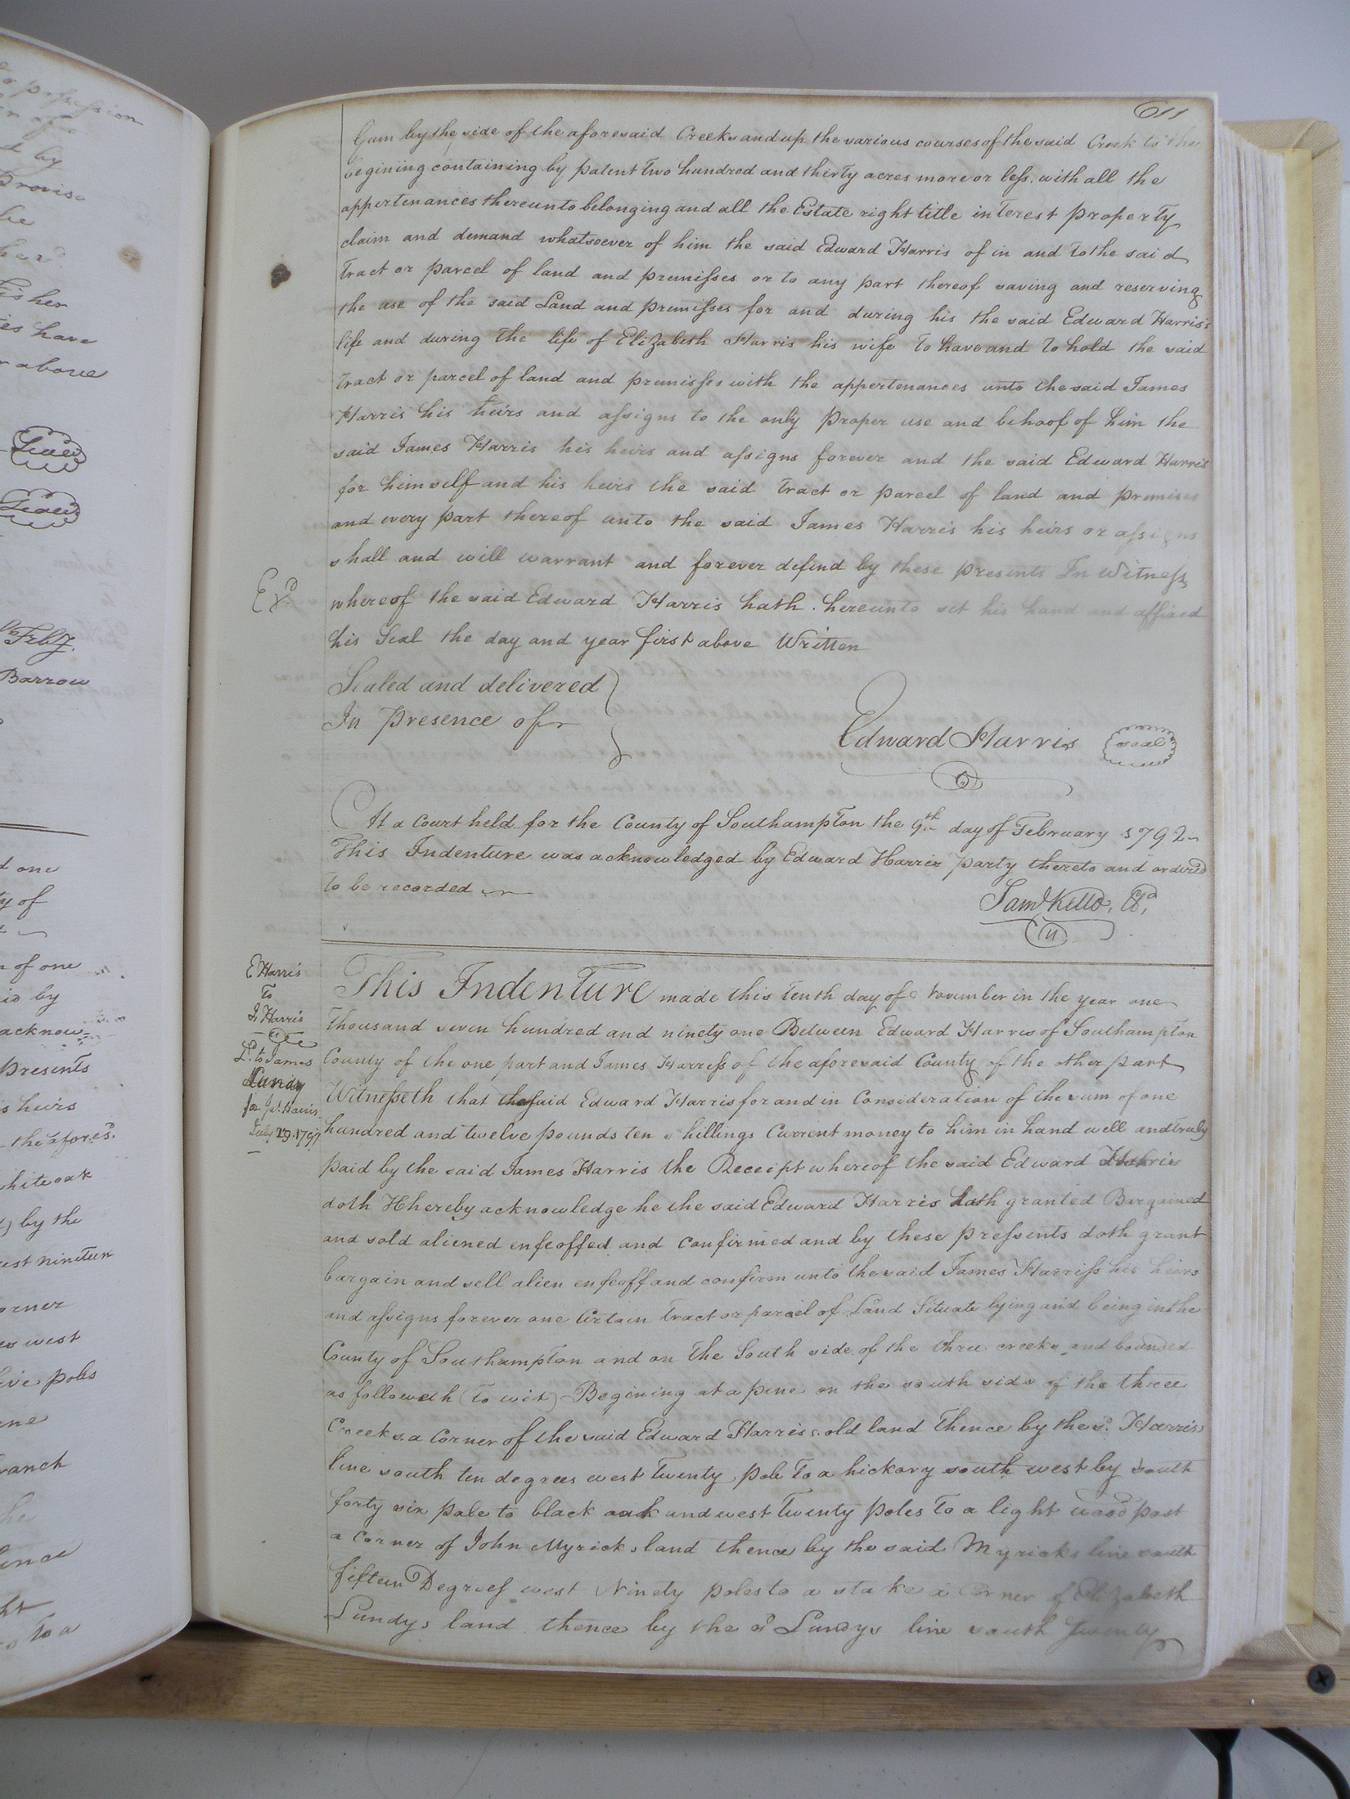 611
Gum by the side of the aforesaid Creek and up the various courses of the said Creek to the
begining containing by patent two hundred and thirty acres more or less with all the
appertenances thereunto belonging and all the Estate right title interest property
claim and demand whatsoever of him the said Edward Harris of in and to the said
tract or parcel of land and premisses or to any part thereof saving and reserving
the use of the said Land and premisses for and during his the said Edward Harris's
life and during the life of Elizabeth Harris his wife To have and To hold the said
tract or parcel of land and premisses with the appertenances unto the said James
Harris his heirs and assigns to the only proper use and behoof of him the
said James Harris his heirs and assigns forever and the said Edward Harris
for himself and his heirs the said tract or parcel of land and premises
and every part thereof unto the said James Harris his heirs or assigns
shall and will warrant and forever defend by these presents In Witness
Exd
whereof the said Edward Harris hath hereunto set his hand and affixed
his Seal the day and year first above Written
Sealed and delivered
In presence of
Edward Harris seal
At a Court held for the County of Southampton the 9th day of February 1792
This Indenture was acknowledged by Edward Harris party thereto and ordered
to be recorded
Saml Kello, Cl
E Harris
To
J. Harris
D. to James
Lundy
for Js. Harris
July 29. 1797
This Indenture made this tenth day of November in the year one
thousand seven hundred and ninety one Between Edward Harris of Southampton
County of the one part and James Harress of the aforesaid County of the other part
Witnesseth that the said Edward Harris for and in Consideration of the sum of one
hundred and twelve pounds ten shillings Current money to him in hand well and truly
paid by the said James Harris the Receipt whereof the said Edward Harris
doth Hhereby acknowledge he the said Edward Harris hath granted Bargained
and sold aliened enfeoffed and confirmed and by these pressents doth grant
bargain and sell alien enfeoff and confirm unto the said James Harriss his heirs
and assigns forever one Certain tract or parcel of Land Situate lying and being in the
County of Southampton and on the South side of the three creeks and bounded
as followeth (to wit) Begining at a pine on the south side of the three
Creeks a Corner of the said Edward Harris's old land thence by the sd. Harris's
line south ten degrees west twenty pole to a hickory south west by south
forty six pole to black oak and west twenty poles to a light wood post
a corner of John Myricks land thence by the said Myricks line south
fifteen Degrees west Ninety poles to a stake a Corner of Elizabeth
Lundys land thence by the sd Lundys line south twenty